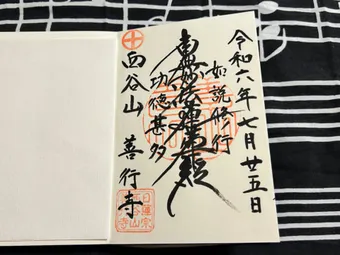 令和六年七月廿五日
如説修行
南無妙法蓮華経
功徳甚多
西谷山 善行寺